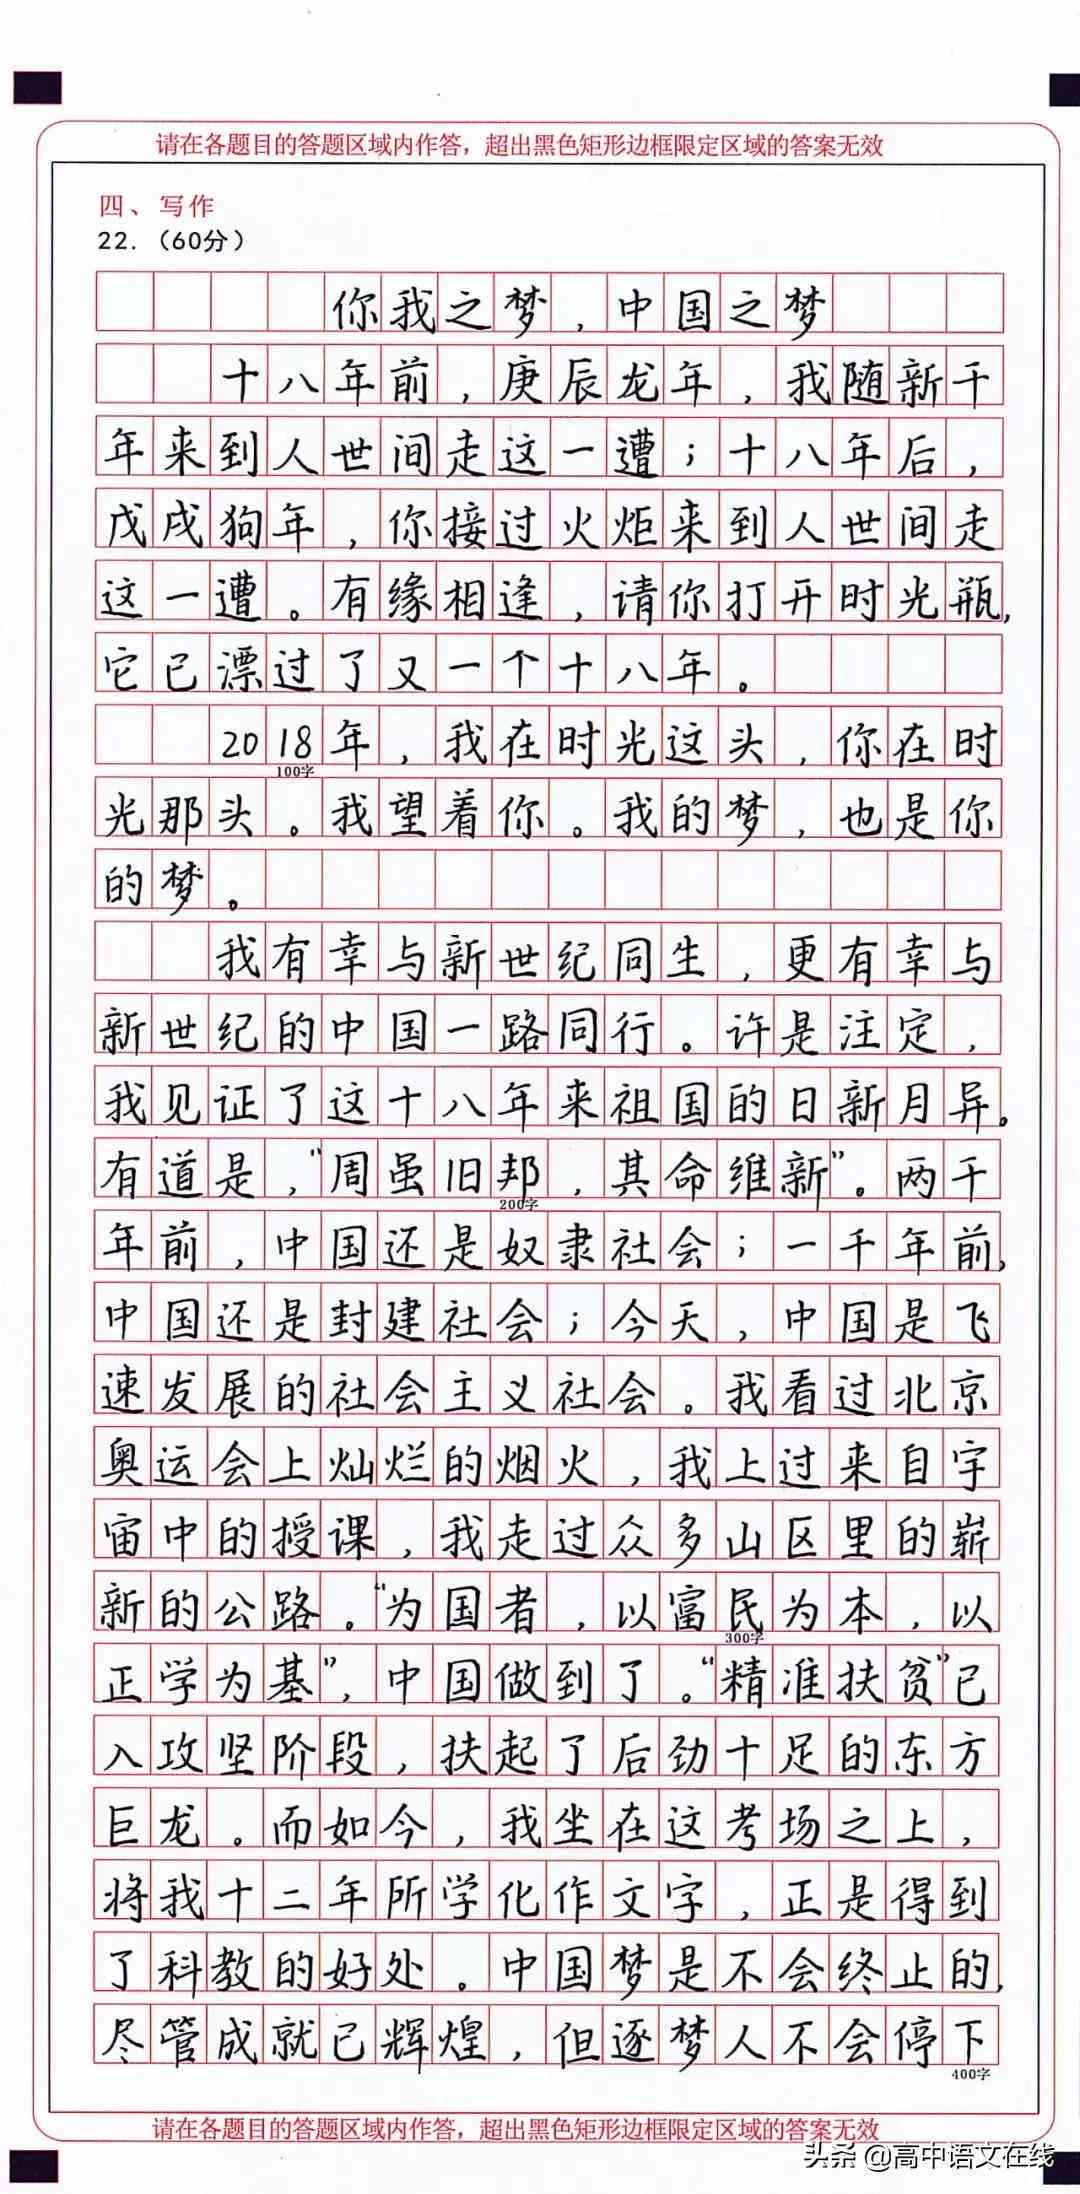 请在各题目的答题区域内作答，超出黑色矩形边框限定区域的答案无效
四、写作
22.（60分）
你我之梦，中国之梦
十八年前，庚辰龙年，我随新千
年来到人世间走这一遭；十八年后，
戊戌狗年，你接过火炬来到人世间走
这一遭。有缘相逢，请你打开时光瓶，
它已漂过了又一个十八年。
2018年，我在时光这头，你在时
100字
光那头。我望着你。我的梦，也是你
的梦。
我有幸与新世纪同生，更有幸与
新世纪的中国一路同行。许是注定，
我见证了这十八年来祖国的日新月异。
有道是，“周虽旧邦，其命维新”。两千
200字
年前，中国还是奴隶社会；一千年前，
中国还是封建社会；今天，中国是飞
速发展的社会主义社会。我看过北京
奥运会上灿烂的烟火，我上过来自宇
宙中的授课，我走过众多山区里的崭
新的公路。“为国者，以富民为本，以
300字
正学为基”，中国做到了。“精准扶贫”已
入攻坚阶段，扶起了后劲十足的东方
巨龙。而如今，我坐在这考场之上，
将我十二年所学化作文字，正是得到
了科教的好处。中国梦是不会终止的，
尽管成就已辉煌，但逐梦人不会停下
400字
请在各题目的答题区域内作答，超出黑色矩形边框限定区域的答案无效
头条 @高中语文在线